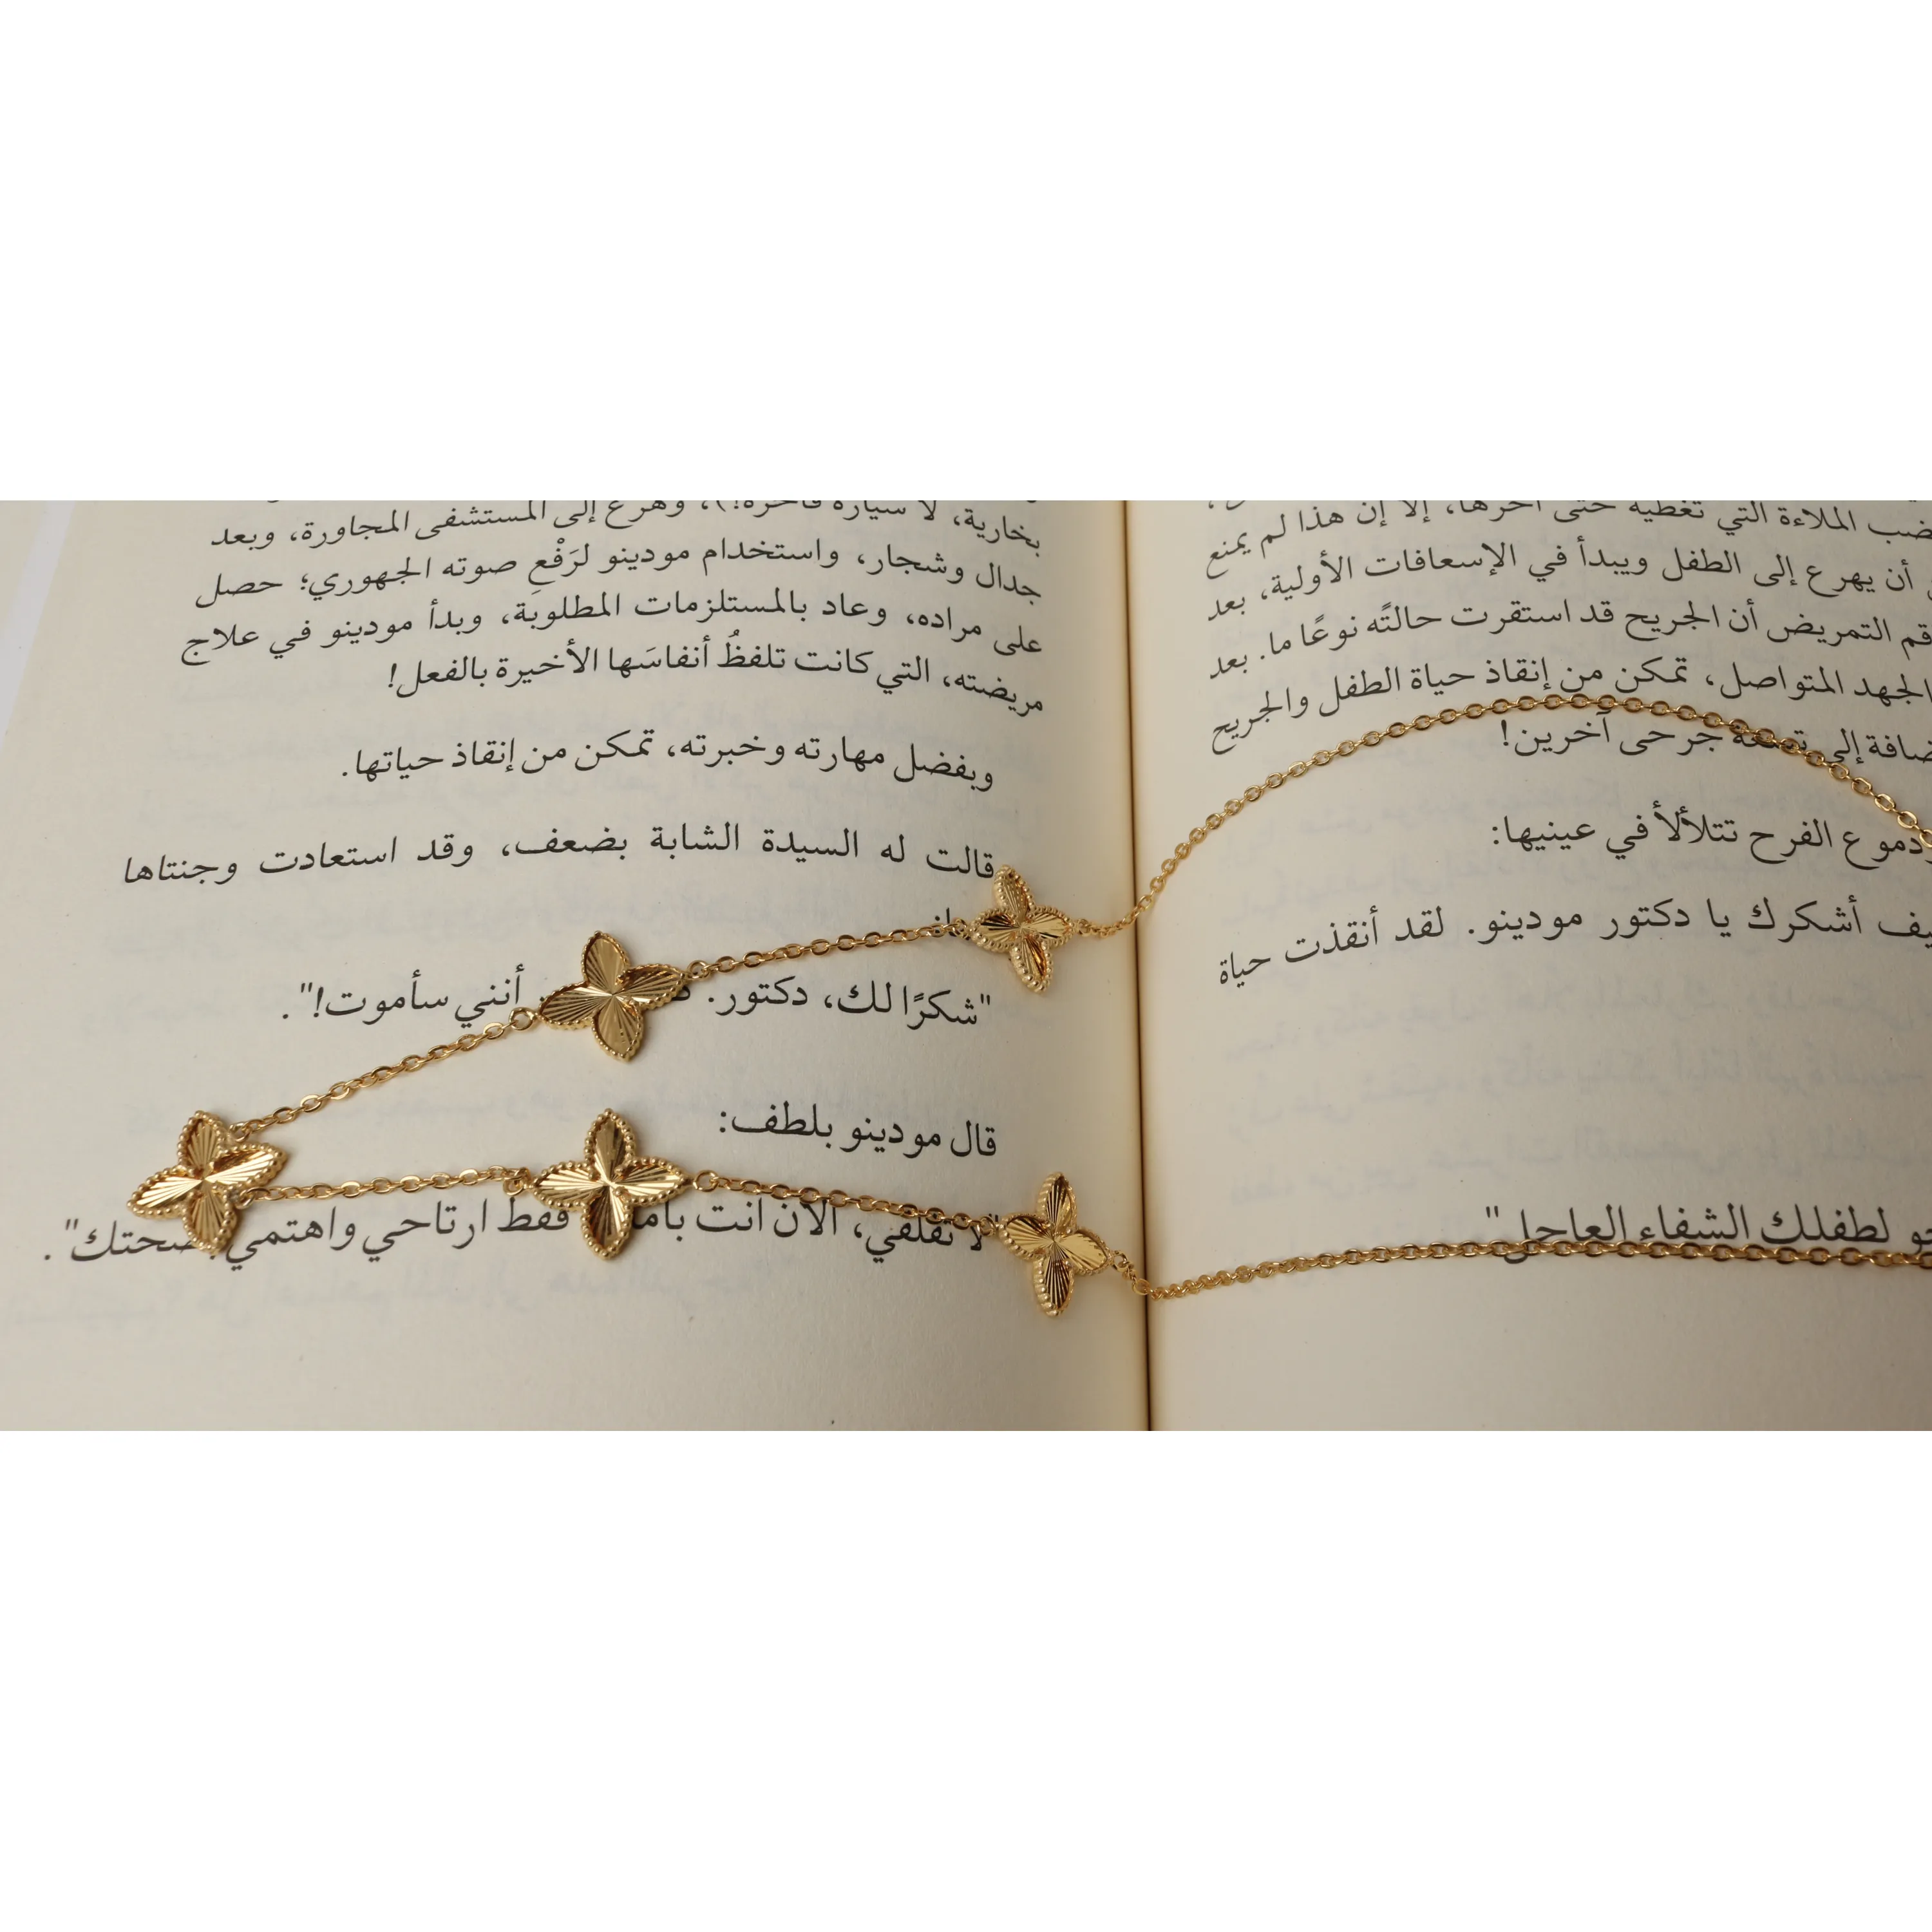 ضب الملاءة التي تغطيه حتى آخرها، إلا إن هذا لم يمنع
أن يهرع إلى الطفل ويبدأ في الإسعافات الأولية، بعد
التمريض أن الجريح قد استقرت حالتًه نوعًا ما. بعد
الجهد المتواصل، تمكن من إنقاذ حياة الطفل والجريح
إلى جرحى آخرين!
دموع الفرح تتلألأ في عينيها:
أشكرك يا دكتور مودينو. لقد أنقذت حياة
لطفلك الشفاء العاجل"
بخارية، لا سيارة فاخرة!)، وهرع إلى المستشفى المجاورة، وبعد
جدال وشجار، واستخدام مودينو لرَفْعِ صوته الجهوري؛ حصل
على مراده، وعاد بالمستلزمات المطلوبة، وبدأ مودينو في علاج
مريضته، التي كانت تلفظُ أنفاسَها الأخيرة بالفعل!
وبفضل مهارته وخبرته، تمكن من إنقاذ حياتها.
قالت له السيدة الشابة بضعف، وقد استعادت وجنتاها
"شكرًا لك، دكتور. أنني سأموت!".
قال مودينو بلطف:
"لا تقلقي، الآن أنت فقط ارتاحي واهتمي بصحتك".